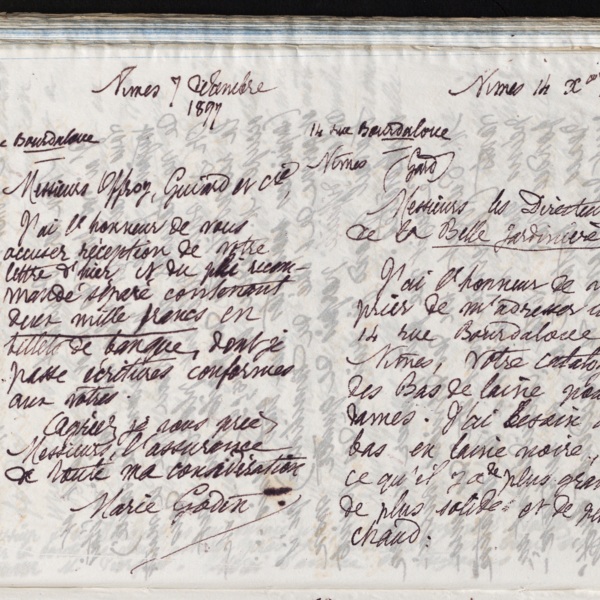 Nimes 7 décembre
1897
Bourdaloue
Messieurs Offroy, Guiard et Cie,
J'ai l'honneur de vous
accuser réception de votre
lettre d'hier et du pli recom-
mandé et contenant
deux mille francs en
billets de banque, dont je
passe écritures conformes
aux vôtres.
Agréez je vous prie,
Messieurs, l'assurance
de toute ma considération
Marie Godin
Nimes 14 Xbre
14 rue Bourdaloue
Nimes (Gard)
Messieurs les Directeu
de la Belle Jardinière
J'ai l'honneur de v
prier de m'adresser
14 rue Bourdaloue
Nimes, votre catal
des Bas de laine pou
dames. J'ai besoin
bas en laine noire,
ce qu'il y a de plus
de plus solide et de pl
chaud.